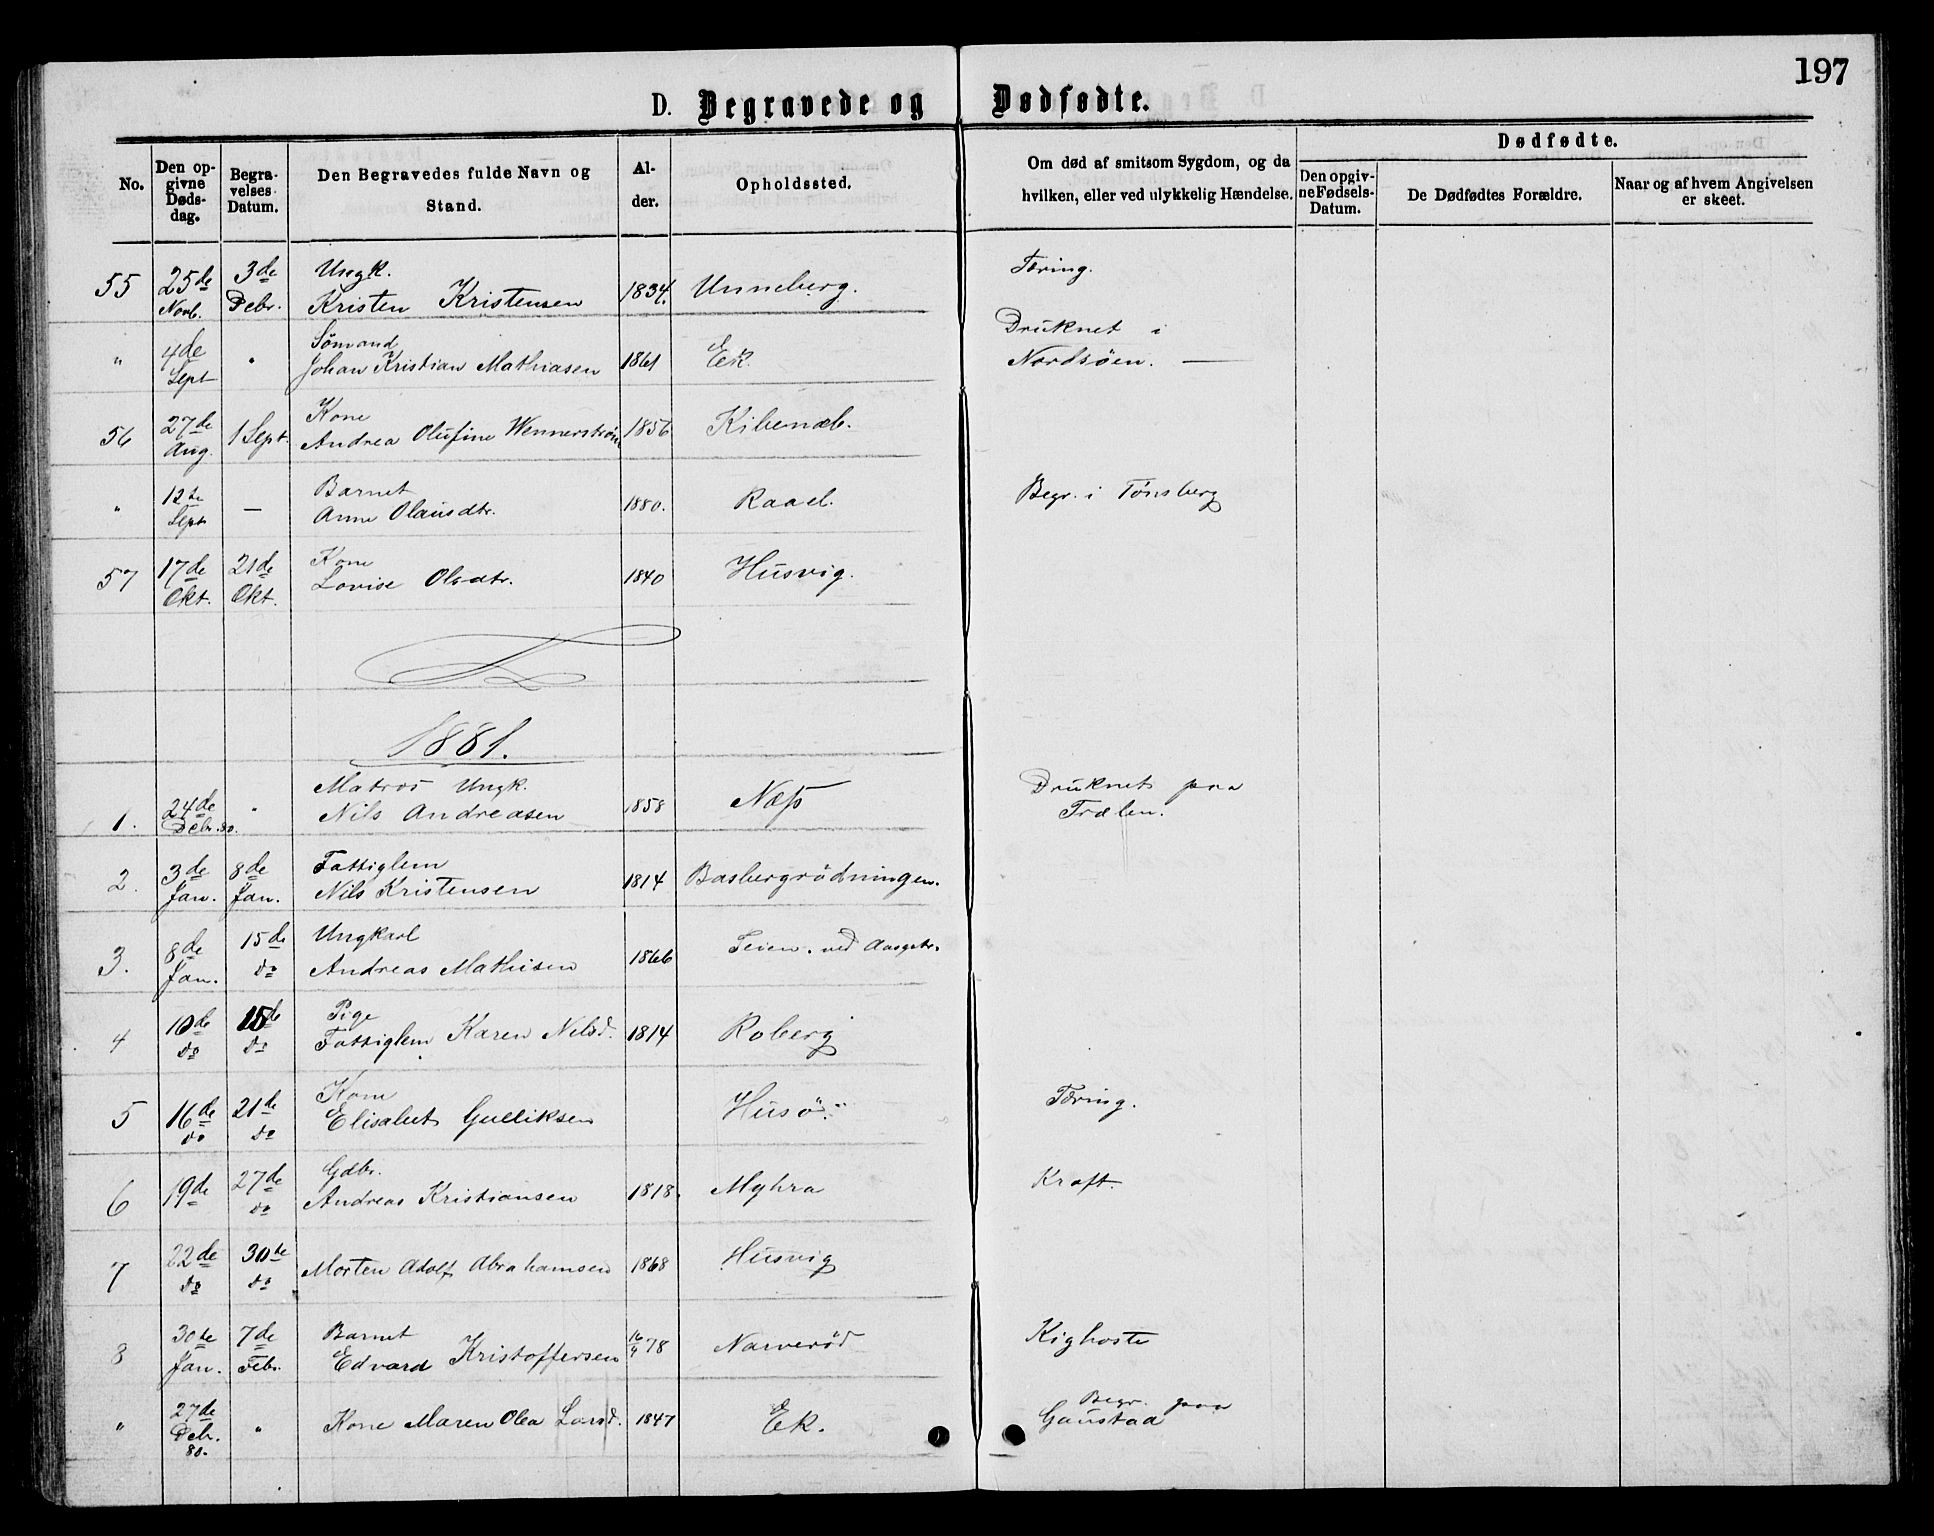 197
D. Begravede og Dødfødte.
No.
Den opgivne Dødsdag.
Begravelses Datum.
Den Begravedes fulde Navn og Stand.
Alder.
Opholdssted.
Om død af smitsom Sygdom, og da hvilken, eller ved ulykkelig Hændelse.
Dødfødte.
Den opgivne Fødsels-Datum.
De Dødfødtes Forældre.
Naar og af hvem Angivelsen er skeet.
55 25de Novb. 3de Debr. Ungk. Kristen Kristensen 1834. Unneberg. Tæring.
" 4de Sept " Sømand Johan Kristian Mathiasen 1861 Eek. Druknet i Nordsøen. —
56 27de Aug. 1 Sept. Kone Andrea Olufine Wennerstrøm 1856 Kibenæb.
" 12te Sept — Barnet Anne Olausdtr. 1880. Raael. Begr. i Tønsberg
57 17de Okt. 21de Okt. Kone Lovise Olsdtr. 1840 Husvig.
1881.
1. 24de Debr. 80. " Matros Ungk. Nils Andreasen 1858 Næss Druknet paa Trælen.
2. 3de Jan. 8de Jan. Fattiglem Nils Kristensen 1814 Basbergrødningen.
3. 8de Jan. 15de do Ungkarl Andreas Mathisen 1866 Teien. ved Aasgstr.
4 10de do 15de do Pige Fattiglem Karen Nilsd. 1814 Roberg
5 16de do 21de do Kone Elisabet Gulliksen Husø. Tæring.
6 19de 27de do Gdbr. Andreas Kristiansen 1818. Myhra Kræft.
7 22de do 30te do Morten Adolf Abrahamsen 1868 Husvig
8 30te Jan. 7de Febr. Barnet Edvard Kristoffersen 16/9 78 Narverød Kighoste
" 27de Debr. 80. " Kone Maren Olea Larsd. 1847 Eek. Begr. paa Gaustad